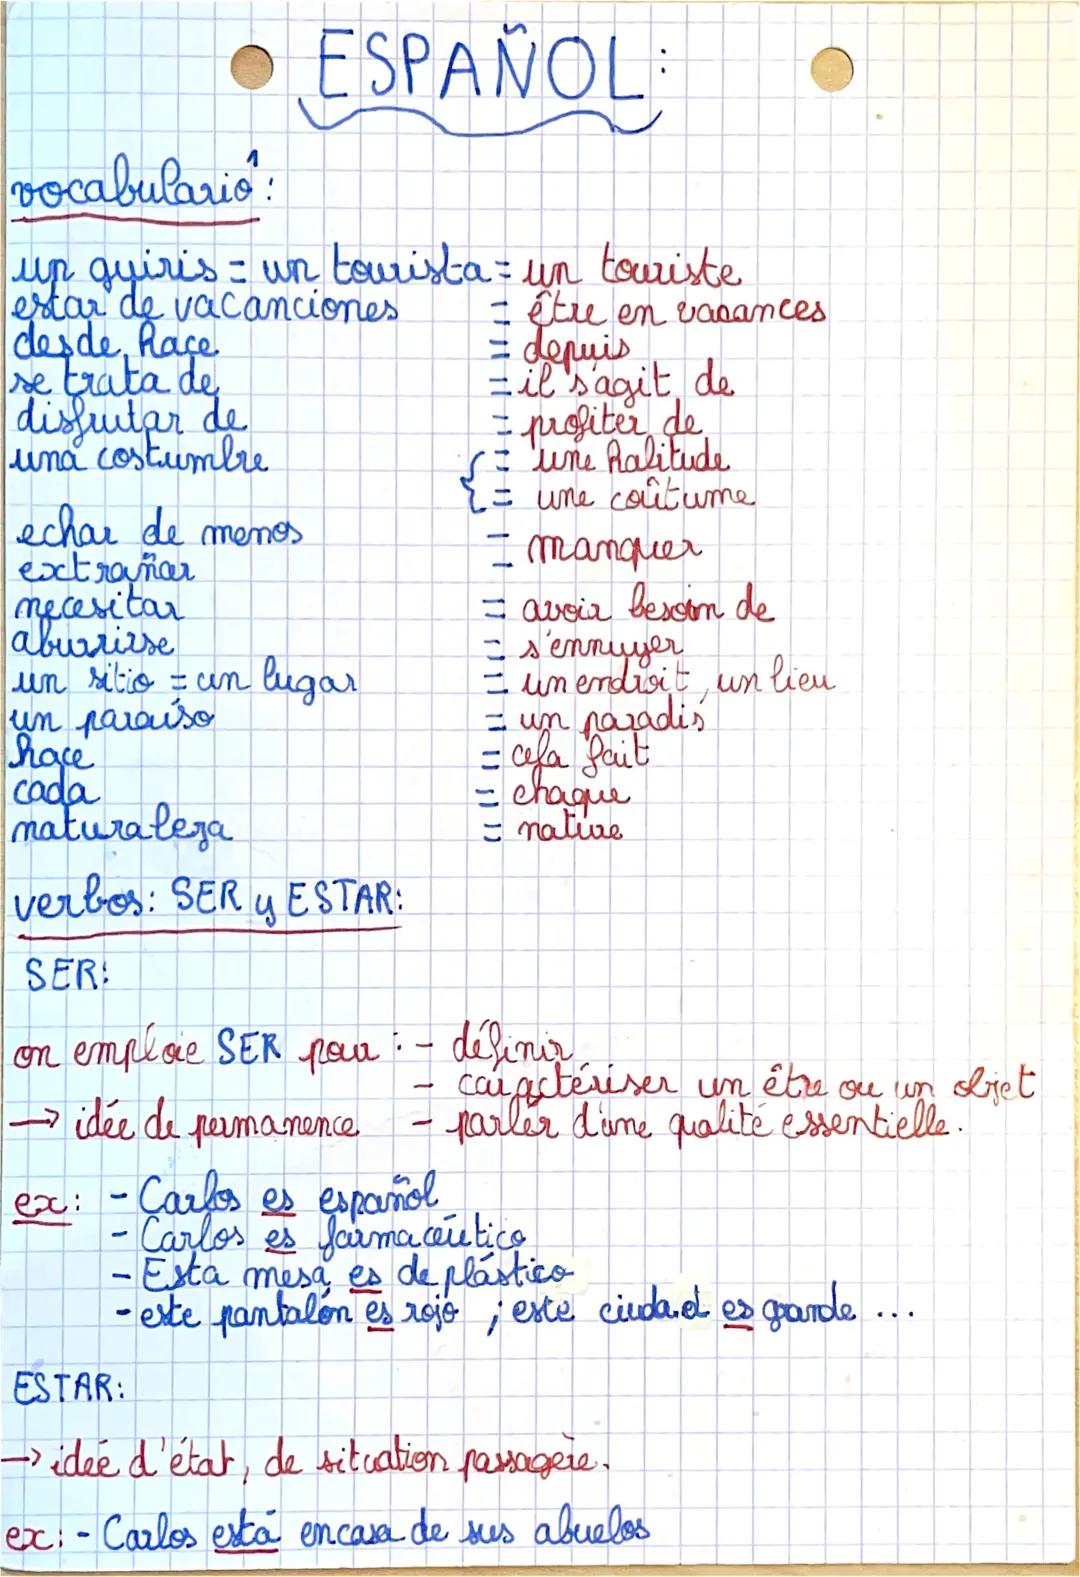 ESPAÑOL:
vocabulario 1:
un guiris = un tourista = un touriste
estar de vacanciones = être en vacances
desde hace = depuis
se trata de = il s'agit de
disfrutar de = profiter de
una costumbre { = une habitude
= une coûtume
echar de menos = manquer
extrañar
necesitar = avoir besoin de
aburrirse = s'ennuyer
un sitio = un lugar = un endroit, un lieu
un paraíso = un paradis
hace = cela fait
cada = chaque
naturaleza = nature
verbos: SER y ESTAR:
SER:
on emploie SER pour : - définir
- caractériser un être ou un objet
→ idée de permanence - parler d'une qualité essentielle.
ex: - Carlos es español
- Carlos es farmaceútico
- Esta mesa es de plástico
- este pantalón es rojo ; este ciudad es grande ...
ESTAR:
→ idée d'état, de situation passagère.
ex: - Carlos está en casa de sus abuelos